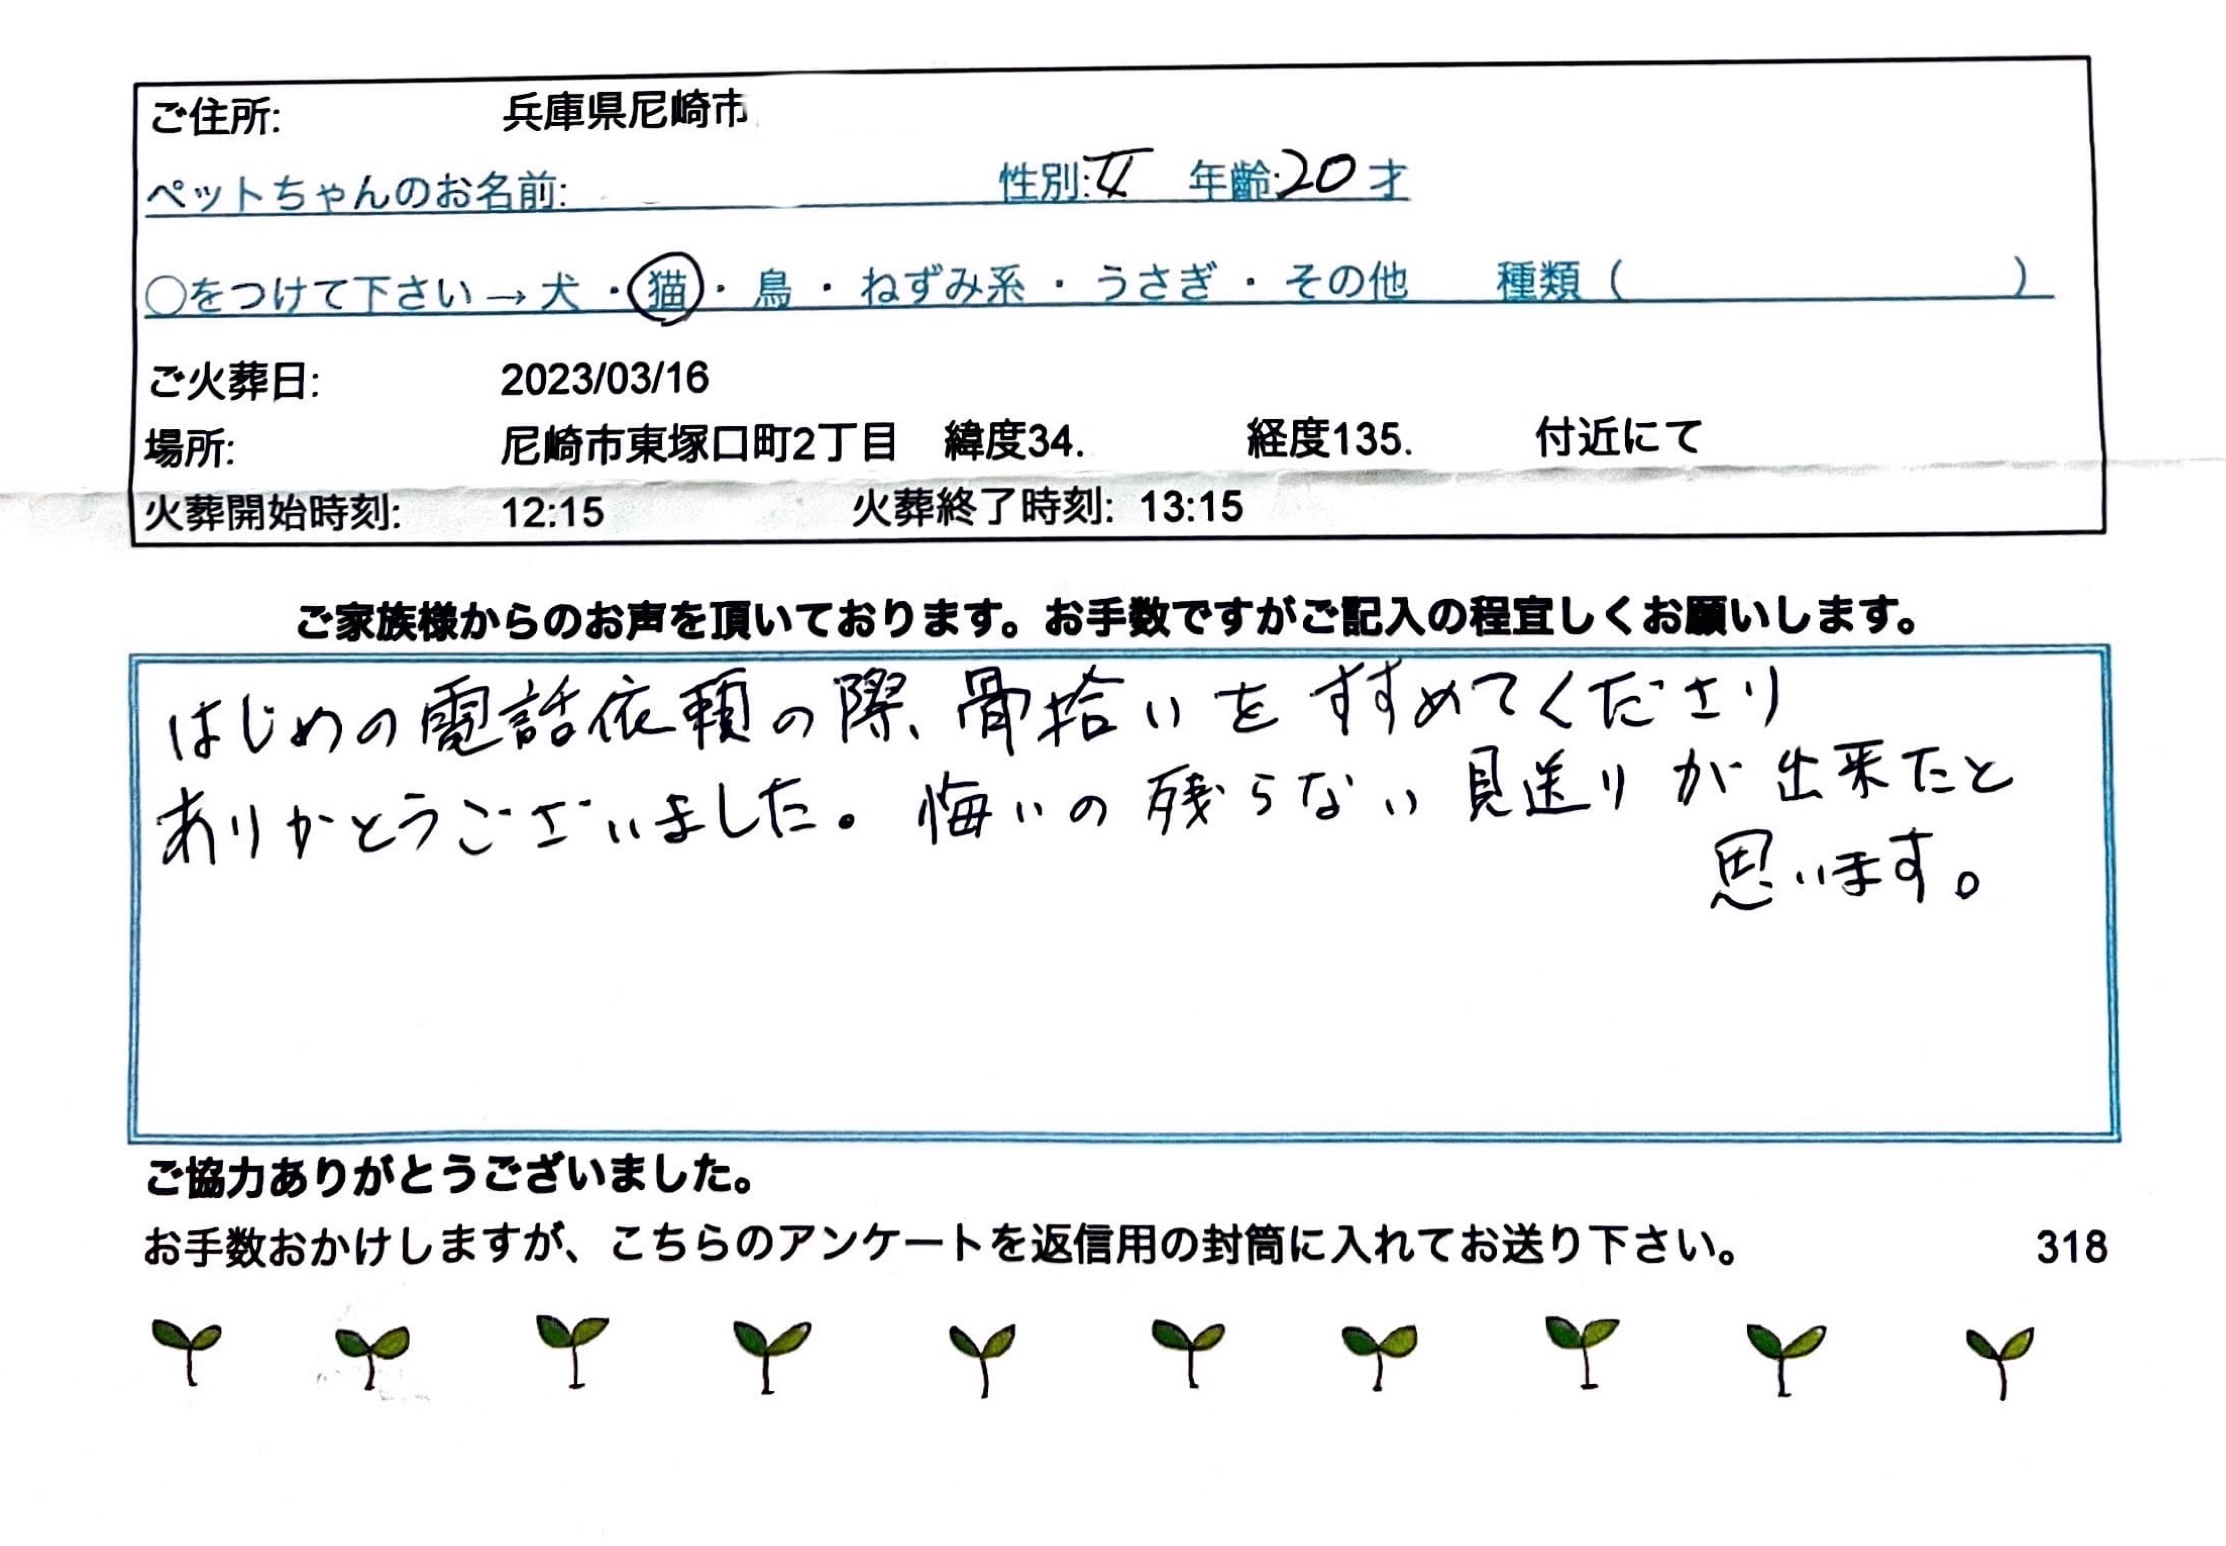 ご住所: 兵庫県尼崎市
ペットちゃんのお名前: 性別:女 年齢:20才
○をつけて下さい→犬・猫・鳥・ねずみ系・うさぎ・その他 種類( )
ご火葬日: 2023/03/16
場所: 尼崎市東塚口町2丁目 緯度34. 経度135. 付近にて
火葬開始時刻: 12:15 火葬終了時刻: 13:15
ご家族様からのお声を頂いております。お手数ですがご記入の程宜しくお願いします。
はじめの電話依頼の際、骨拾いをすすめてくださり
ありがとうございました。悔いの残らない見送りが出来たと
思います。
ご協力ありがとうございました。
お手数おかけしますが、こちらのアンケートを返信用の封筒に入れてお送り下さい。 318